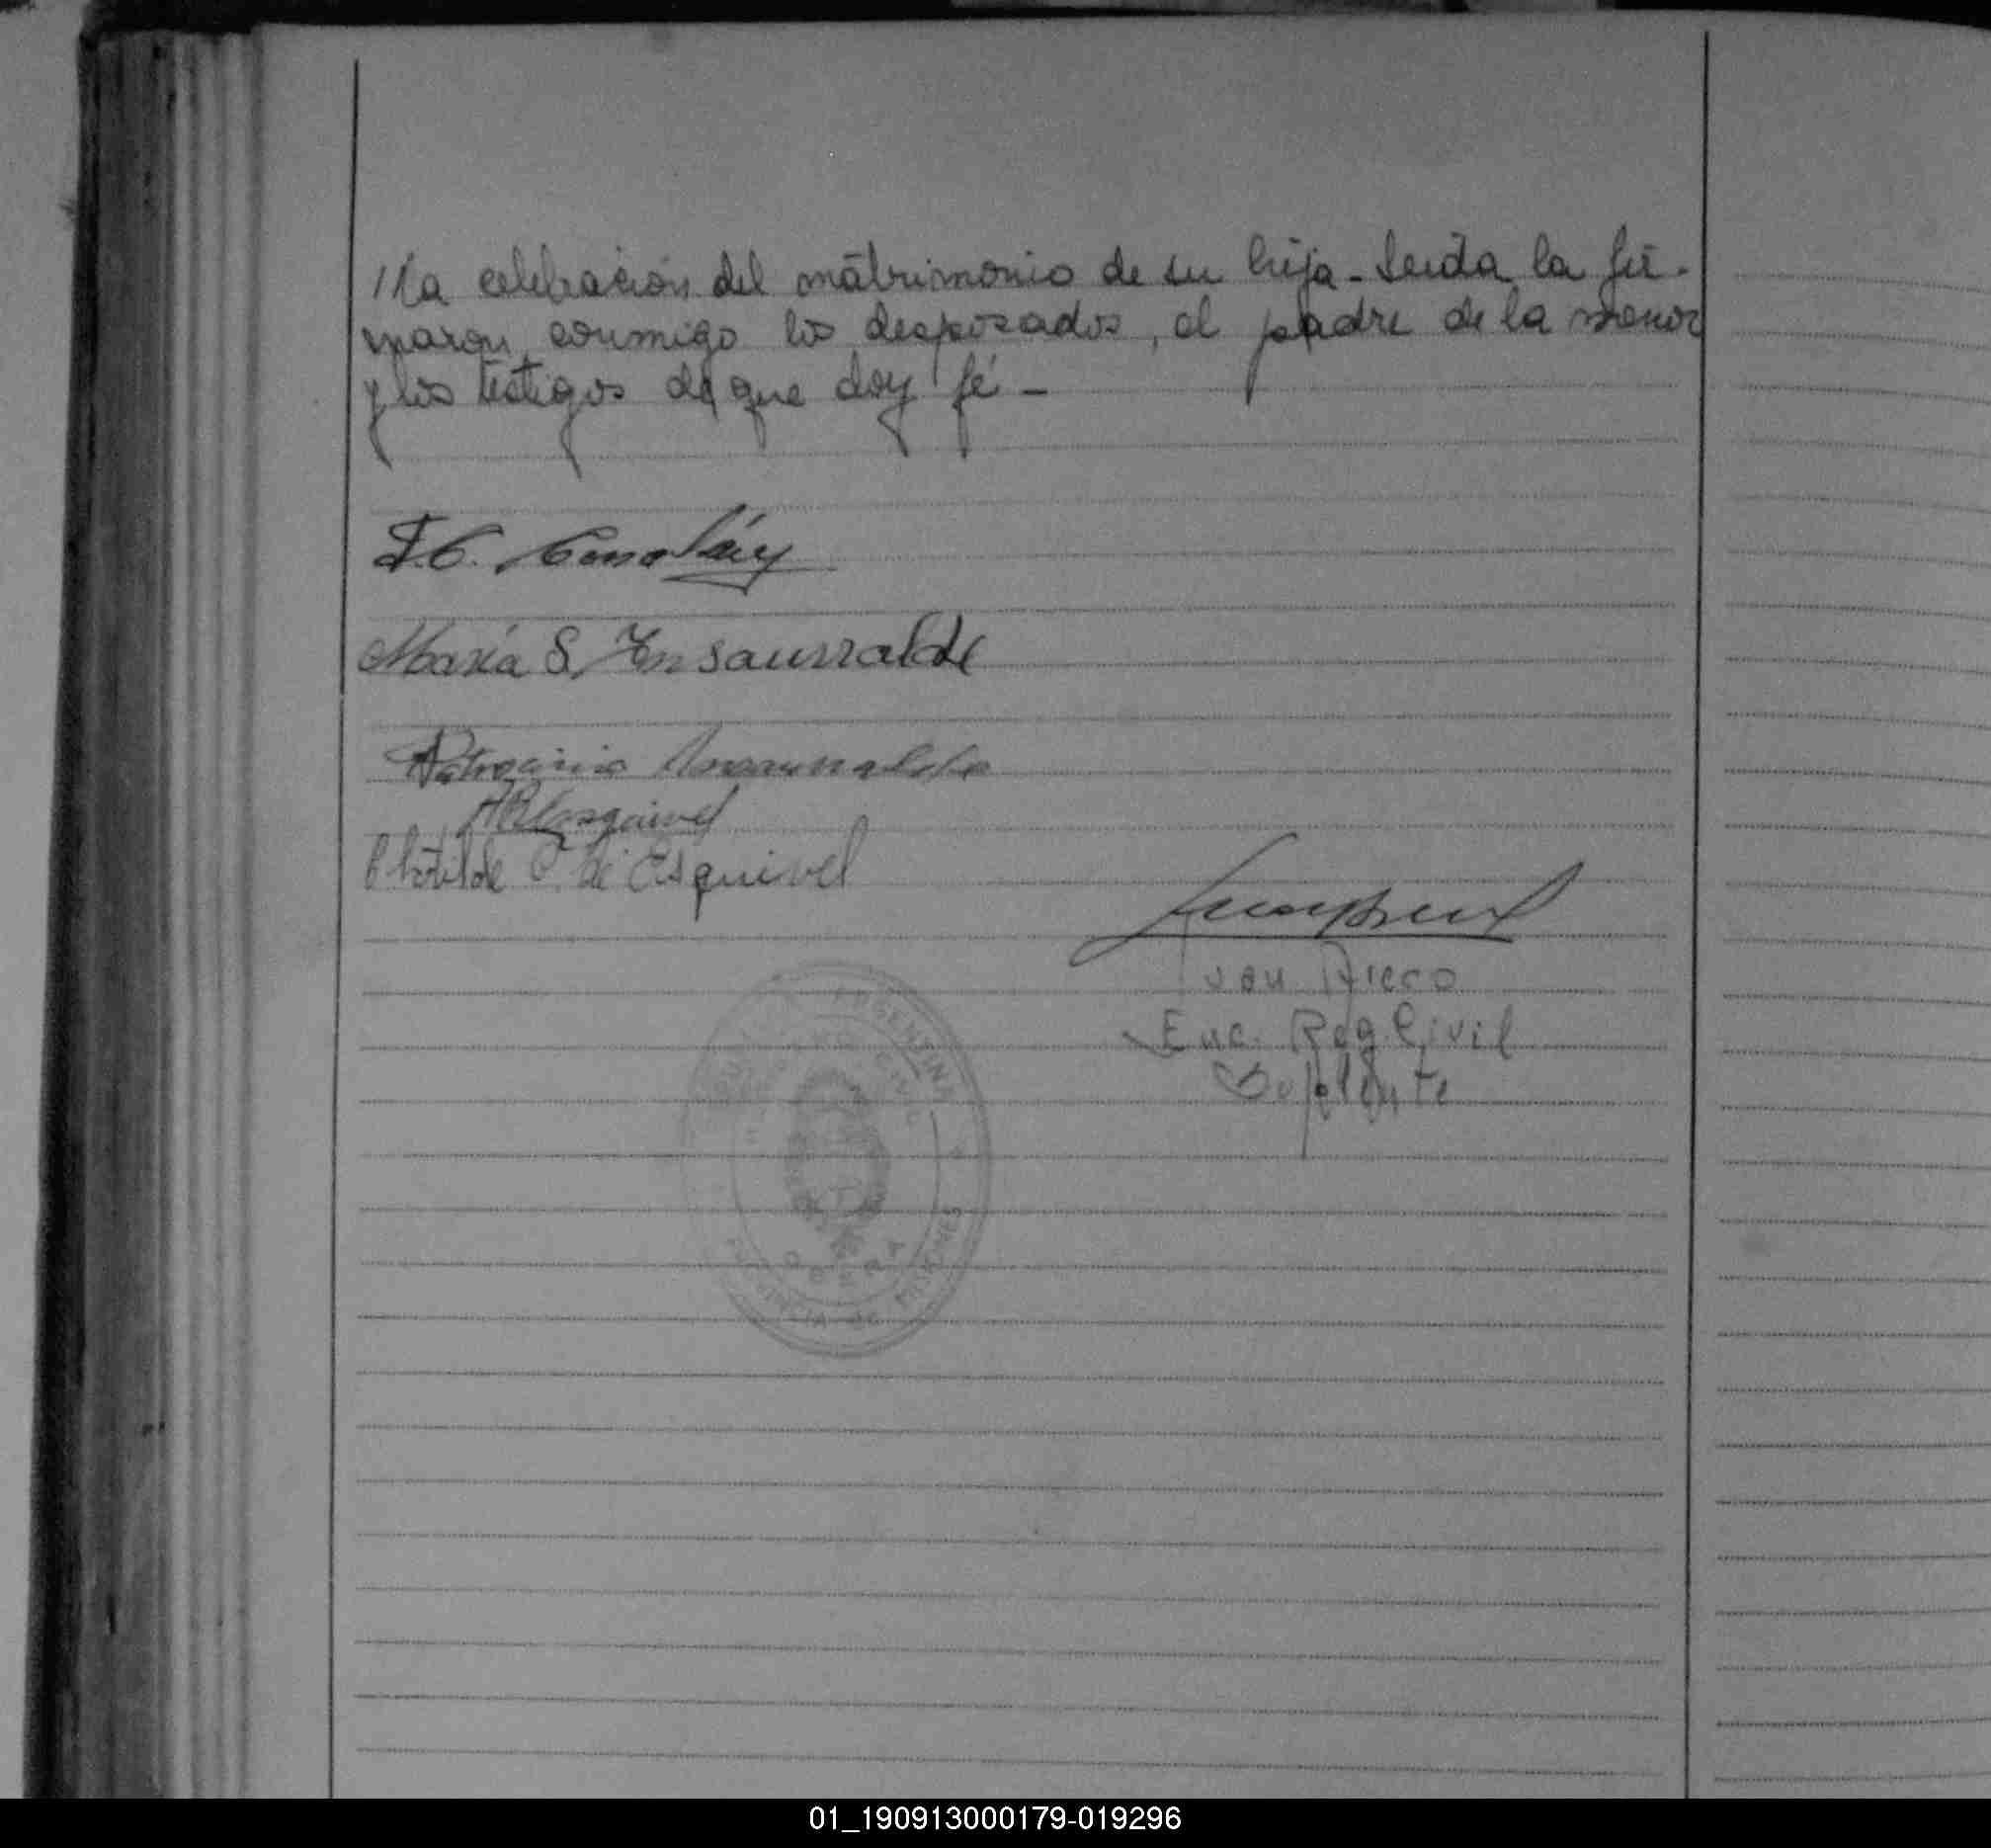 //la celebración del matrimonio de su hija - Leída la fir-
maron conmigo los desposados, el padre de la menor
y los testigos de que doy fé -
María S. Insaurralde
Patrocinio Insaurralde
Esquivel
Clotilde C. de Esquivel
Enc. Reg. Civil
Suplente
ARGENTINA
CIVIL
PROVINCIA DE MISIONES
OBERA
01_190913000179-019296